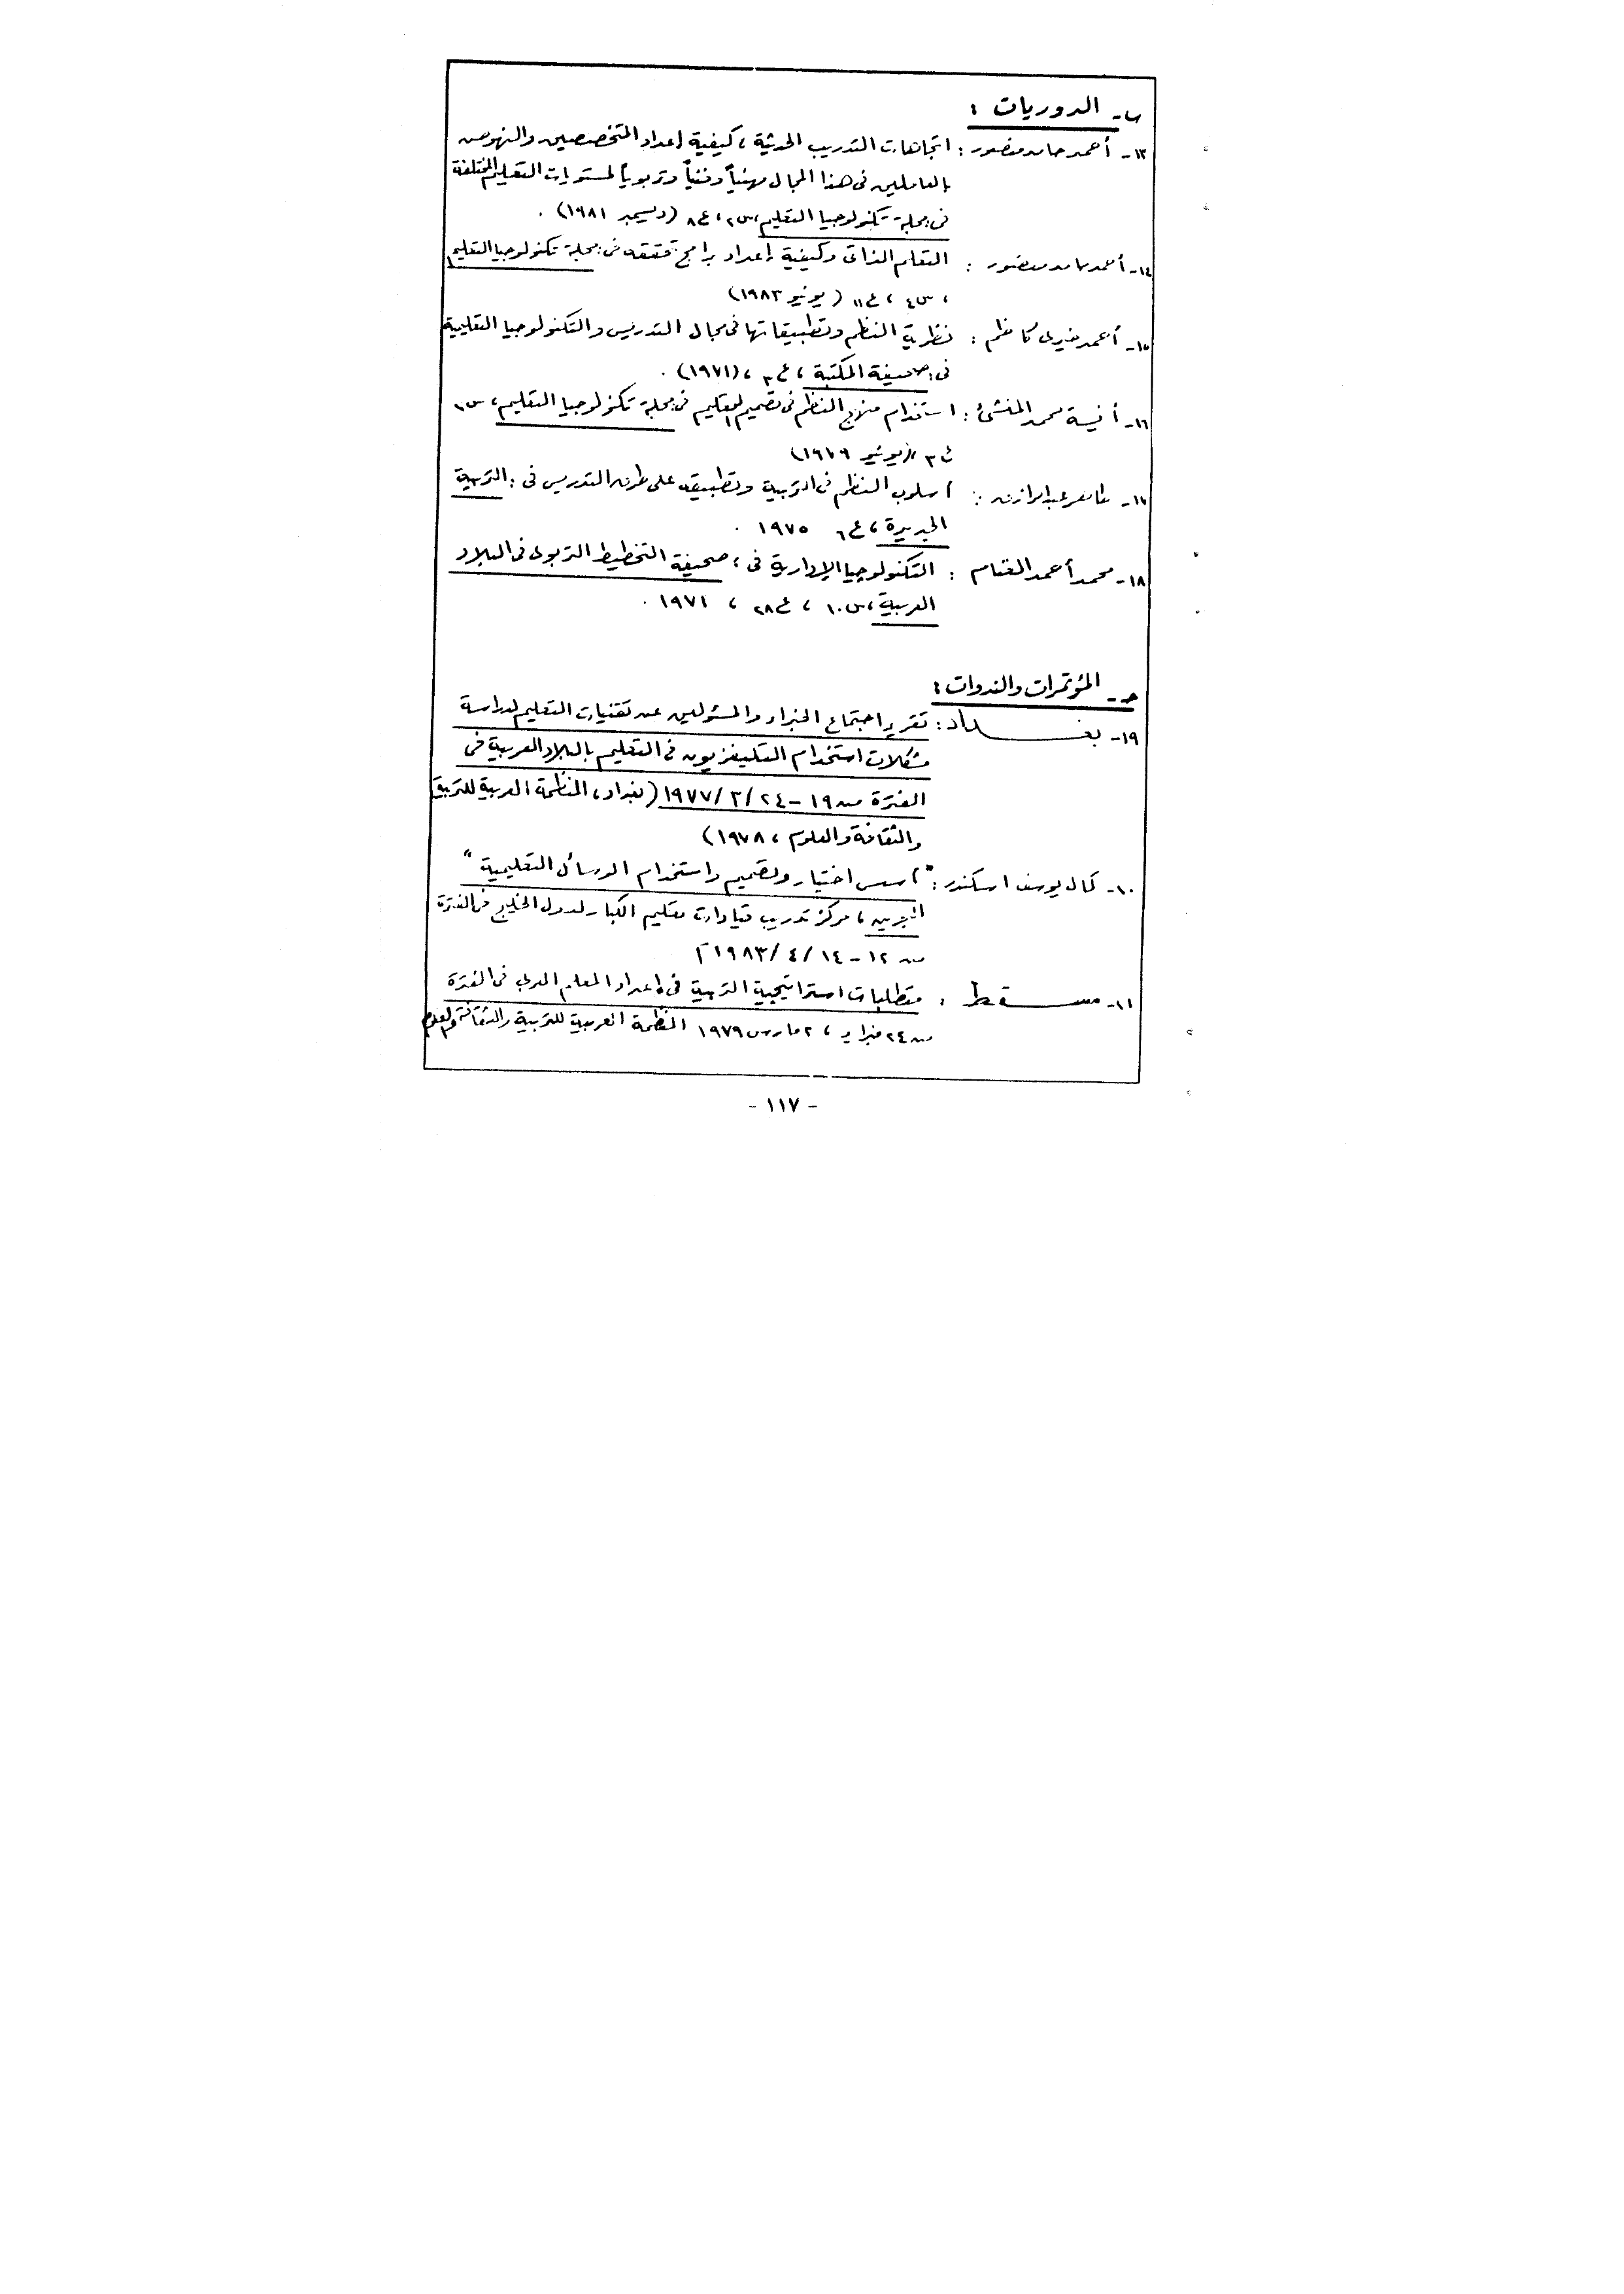 ب- الدوريات :
١٣- أحمد حامد منصور : اتجاهات التدريب الحديثة ، كيفية إعداد المتخصصين والنهوض
بالعاملين فى هذا المجال مهنياً وفنياً وتربوياً لمستويات التعليم المختلفة
فى مجلة تكنولوجيا التعليم، س٢ ، ع٨ (ديسمبر ١٩٨١) .
١٤- أحمد حامد منصور : التعلم الذاتى وكيفية إعداد برامج تحققه فى : مجلة تكنولوجيا التعليم
، س٤ ، ع١١ ( يونيو ١٩٨٣)
١٥- أحمد خيرى كاظم : نظرية النظم وتطبيقاتها فى مجال التدريس والتكنولوجيا التعليمية
فى : صحيفة المكتبة ، ع٣ ، (١٩٧١) .
١٦- أنيسة محمد المنشئ : استخدام منهج النظم فى تصميم التعليم فى مجلة تكنولوجيا التعليم ، س١
ع٣ ،(يونيو ١٩٧٩)
١٧- طاهر عبدالرازق : أسلوب النظم فى التربية وتطبيقه على طرق التدريس فى : التربية
الجديدة ، ع٦ ١٩٧٥ .
١٨- محمد أحمد الغنام : التكنولوجيا الإدارية فى ، صحيفة التخطيط التربوى فى البلاد
العربية ، س١٠ ، ع٢٨ ، ١٩٧١ .
حـ- المؤتمرات والندوات :
١٩- بغداد : تقرير اجتماع الخبراء والمسئولين عن تقنيات التعليم لدراسة
مشكلات استخدام التليفزيون فى التعليم بالبلاد العربية فى
الفترة من ١٩ - ٢٤ /٣/ ١٩٧٧ (بغداد ، المنظمة العربية للتربية
والثقافة والعلوم ، ١٩٧٨)
١٠- كمال يوسف اسكندر : " أسس اختيار وتصميم واستخدام الوسائل التعليمية "
البحرين ، مركز تدريب قيادات تعليم الكبار لدول الخليج فى الفترة
من ١٢ - ١٤ /٤/ ١٩٨٣ م
١١- مسقط ، متطلبات استراتيجية التربية فى إعداد المعلم العربى فى الفترة
من ٢٤ فبراير ، ٢ مارس ١٩٧٩ المنظمة العربية للتربية والثقافة والعلوم
- ١١٧ -